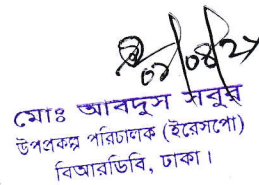 ০১/০৪/২১
মোঃ আবদুস সবুর
উপপ্রকল্প পরিচালক (ইরেসপো)
বিআরডিবি, ঢাকা।